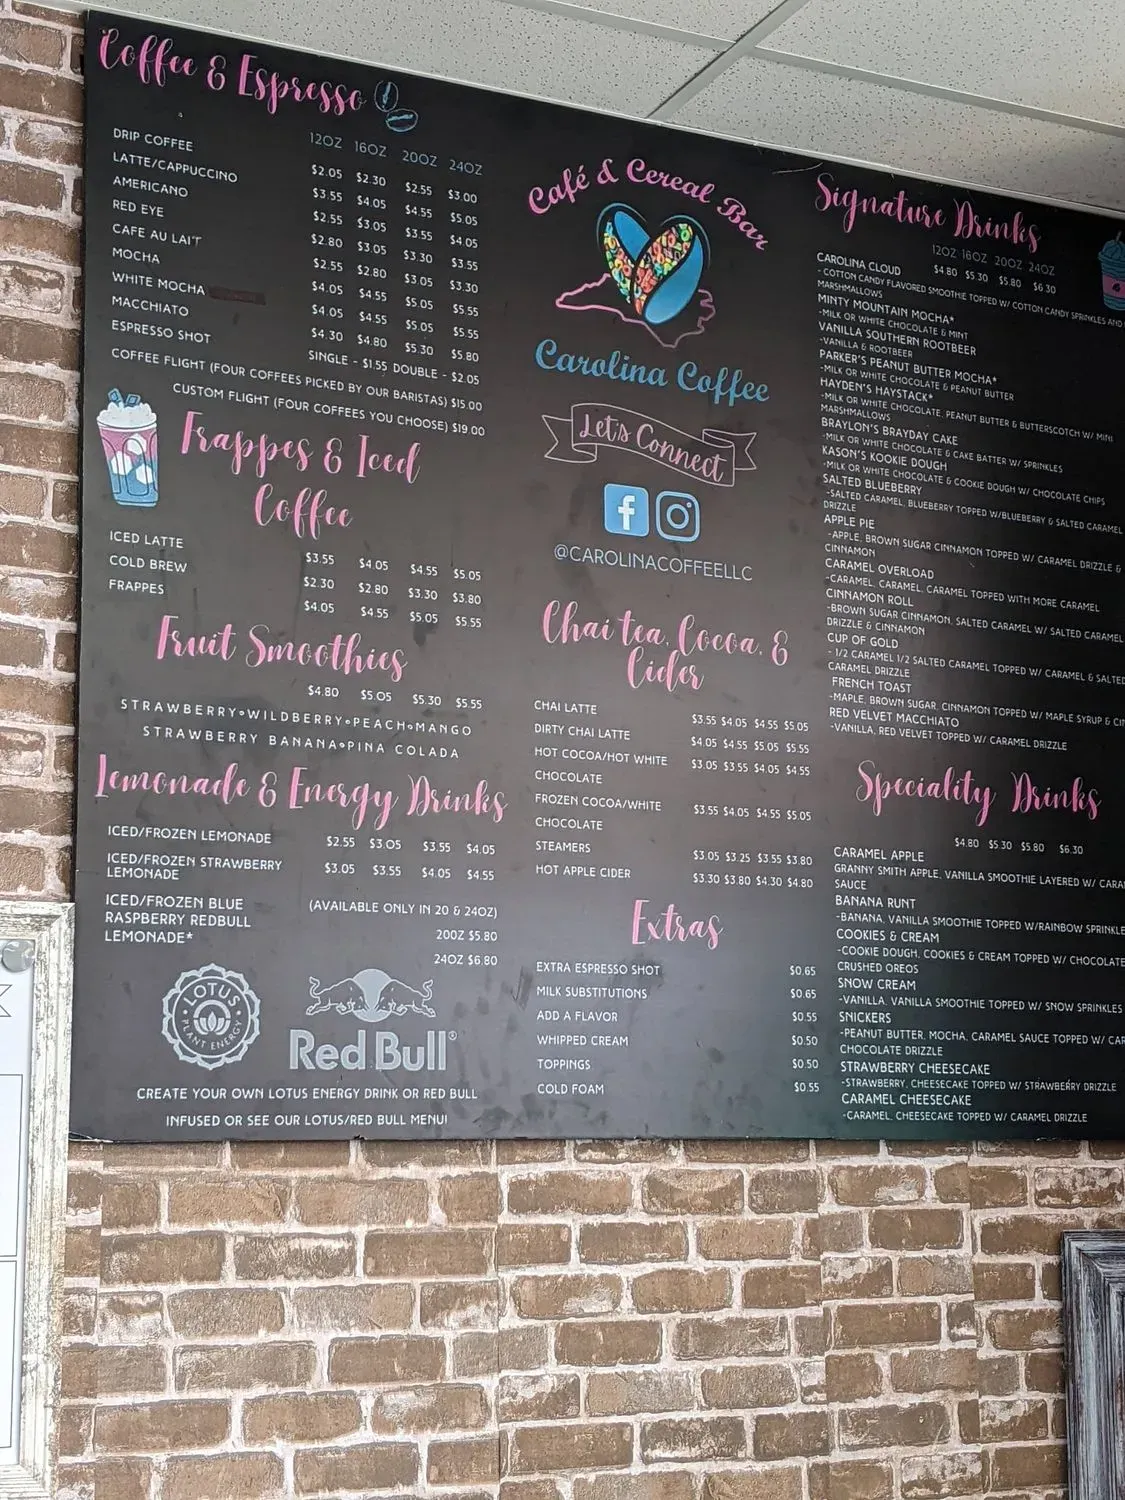 Coffee & Espresso
12OZ 16OZ 20OZ 24OZ
DRIP COFFEE $2.05 $2.30 $2.55 $3.00
LATTE/CAPPUCCINO $3.55 $4.05 $4.55 $5.05
AMERICANO $2.55 $3.05 $3.55 $4.05
RED EYE $2.80 $3.05 $3.30 $3.55
CAFE AU LAIT $2.55 $2.80 $3.05 $3.30
MOCHA $4.05 $4.55 $5.05 $5.55
WHITE MOCHA $4.05 $4.55 $5.05 $5.55
MACCHIATO $4.30 $4.80 $5.30 $5.80
ESPRESSO SHOT SINGLE - $1.55 DOUBLE - $2.05
COFFEE FLIGHT (FOUR COFFEES PICKED BY OUR BARISTAS) $15.00
CUSTOM FLIGHT (FOUR COFFEES YOU CHOOSE) $19.00
Frappes & Iced
Coffee
ICED LATTE $3.55 $4.05 $4.55 $5.05
COLD BREW $2.30 $2.80 $3.30 $3.80
FRAPPES $4.05 $4.55 $5.05 $5.55
Fruit Smoothies
$4.80 $5.05 $5.30 $5.55
STRAWBERRY∘WILDBERRY∘PEACH∘MANGO
STRAWBERRY BANANA∘PINA COLADA
Lemonade & Energy Drinks
ICED/FROZEN LEMONADE $2.55 $3.05 $3.55 $4.05
ICED/FROZEN STRAWBERRY
LEMONADE $3.05 $3.55 $4.05 $4.55
ICED/FROZEN BLUE (AVAILABLE ONLY IN 20 & 24OZ)
RASPBERRY REDBULL 20OZ $5.80
LEMONADE* 24OZ $6.80
LOTUS
PLANT ENERGY
Red Bull®
CREATE YOUR OWN LOTUS ENERGY DRINK OR RED BULL
INFUSED OR SEE OUR LOTUS/RED BULL MENU!
Café & Cereal Bar
Carolina Coffee
Let's Connect
@CAROLINACOFFEELLC
Chai tea, Cocoa, &
Cider
CHAI LATTE $3.55 $4.05 $4.55 $5.05
DIRTY CHAI LATTE $4.05 $4.55 $5.05 $5.55
HOT COCOA/HOT WHITE $3.05 $3.55 $4.05 $4.55
CHOCOLATE
FROZEN COCOA/WHITE $3.55 $4.05 $4.55 $5.05
CHOCOLATE
STEAMERS $3.05 $3.25 $3.55 $3.80
HOT APPLE CIDER $3.30 $3.80 $4.30 $4.80
Extras
EXTRA ESPRESSO SHOT $0.65
MILK SUBSTITUTIONS $0.65
ADD A FLAVOR $0.55
WHIPPED CREAM $0.50
TOPPINGS $0.50
COLD FOAM $0.55
Signature Drinks
12OZ 16OZ 20OZ 24OZ
CAROLINA CLOUD $4.80 $5.30 $5.80 $6.30
- COTTON CANDY FLAVORED SMOOTHIE TOPPED W/ COTTON CANDY SPRINKLES AND
MARSHMALLOWS
MINTY MOUNTAIN MOCHA*
-MILK OR WHITE CHOCOLATE & MINT
VANILLA SOUTHERN ROOTBEER
-VANILLA & ROOTBEER
PARKER'S PEANUT BUTTER MOCHA*
-MILK OR WHITE CHOCOLATE & PEANUT BUTTER
HAYDEN'S HAYSTACK*
-MILK OR WHITE CHOCOLATE, PEANUT BUTTER & BUTTERSCOTCH W/ MINI
MARSHMALLOWS
BRAYLON'S BRAYDAY CAKE
-MILK OR WHITE CHOCOLATE & CAKE BATTER W/ SPRINKLES
KASON'S KOOKIE DOUGH
-MILK OR WHITE CHOCOLATE & COOKIE DOUGH W/ CHOCOLATE CHIPS
SALTED BLUEBERRY
-SALTED CARAMEL, BLUEBERRY TOPPED W/BLUEBERRY & SALTED CARAMEL
DRIZZLE
APPLE PIE
-APPLE, BROWN SUGAR CINNAMON TOPPED W/ CARAMEL DRIZZLE &
CINNAMON
CARAMEL OVERLOAD
-CARAMEL, CARAMEL, CARAMEL TOPPED WITH MORE CARAMEL
CINNAMON ROLL
-BROWN SUGAR CINNAMON, SALTED CARAMEL W/ SALTED CARAMEL
DRIZZLE & CINNAMON
CUP OF GOLD
- 1/2 CARAMEL 1/2 SALTED CARAMEL TOPPED W/ CARAMEL & SALTED
CARAMEL DRIZZLE
FRENCH TOAST
-MAPLE, BROWN SUGAR, CINNAMON TOPPED W/ MAPLE SYRUP &
RED VELVET MACCHIATO
-VANILLA, RED VELVET TOPPED W/ CARAMEL DRIZZLE
Speciality Drinks
$4.80 $5.30 $5.80 $6.30
CARAMEL APPLE
GRANNY SMITH APPLE, VANILLA SMOOTHIE LAYERED W/
SAUCE
BANANA RUNT
-BANANA, VANILLA SMOOTHIE TOPPED W/RAINBOW SPRINKLE
COOKIES & CREAM
-COOKIE DOUGH, COOKIES & CREAM TOPPED W/ CHOCOLATE
CRUSHED OREOS
SNOW CREAM
-VANILLA, VANILLA SMOOTHIE TOPPED W/ SNOW SPRINKLES
SNICKERS
-PEANUT BUTTER, MOCHA, CARAMEL SAUCE TOPPED W/
CHOCOLATE DRIZZLE
STRAWBERRY CHEESECAKE
-STRAWBERRY, CHEESECAKE TOPPED W/ STRAWBERRY DRIZZLE
CARAMEL CHEESECAKE
-CARAMEL, CHEESECAKE TOPPED W/ CARAMEL DRIZZLE